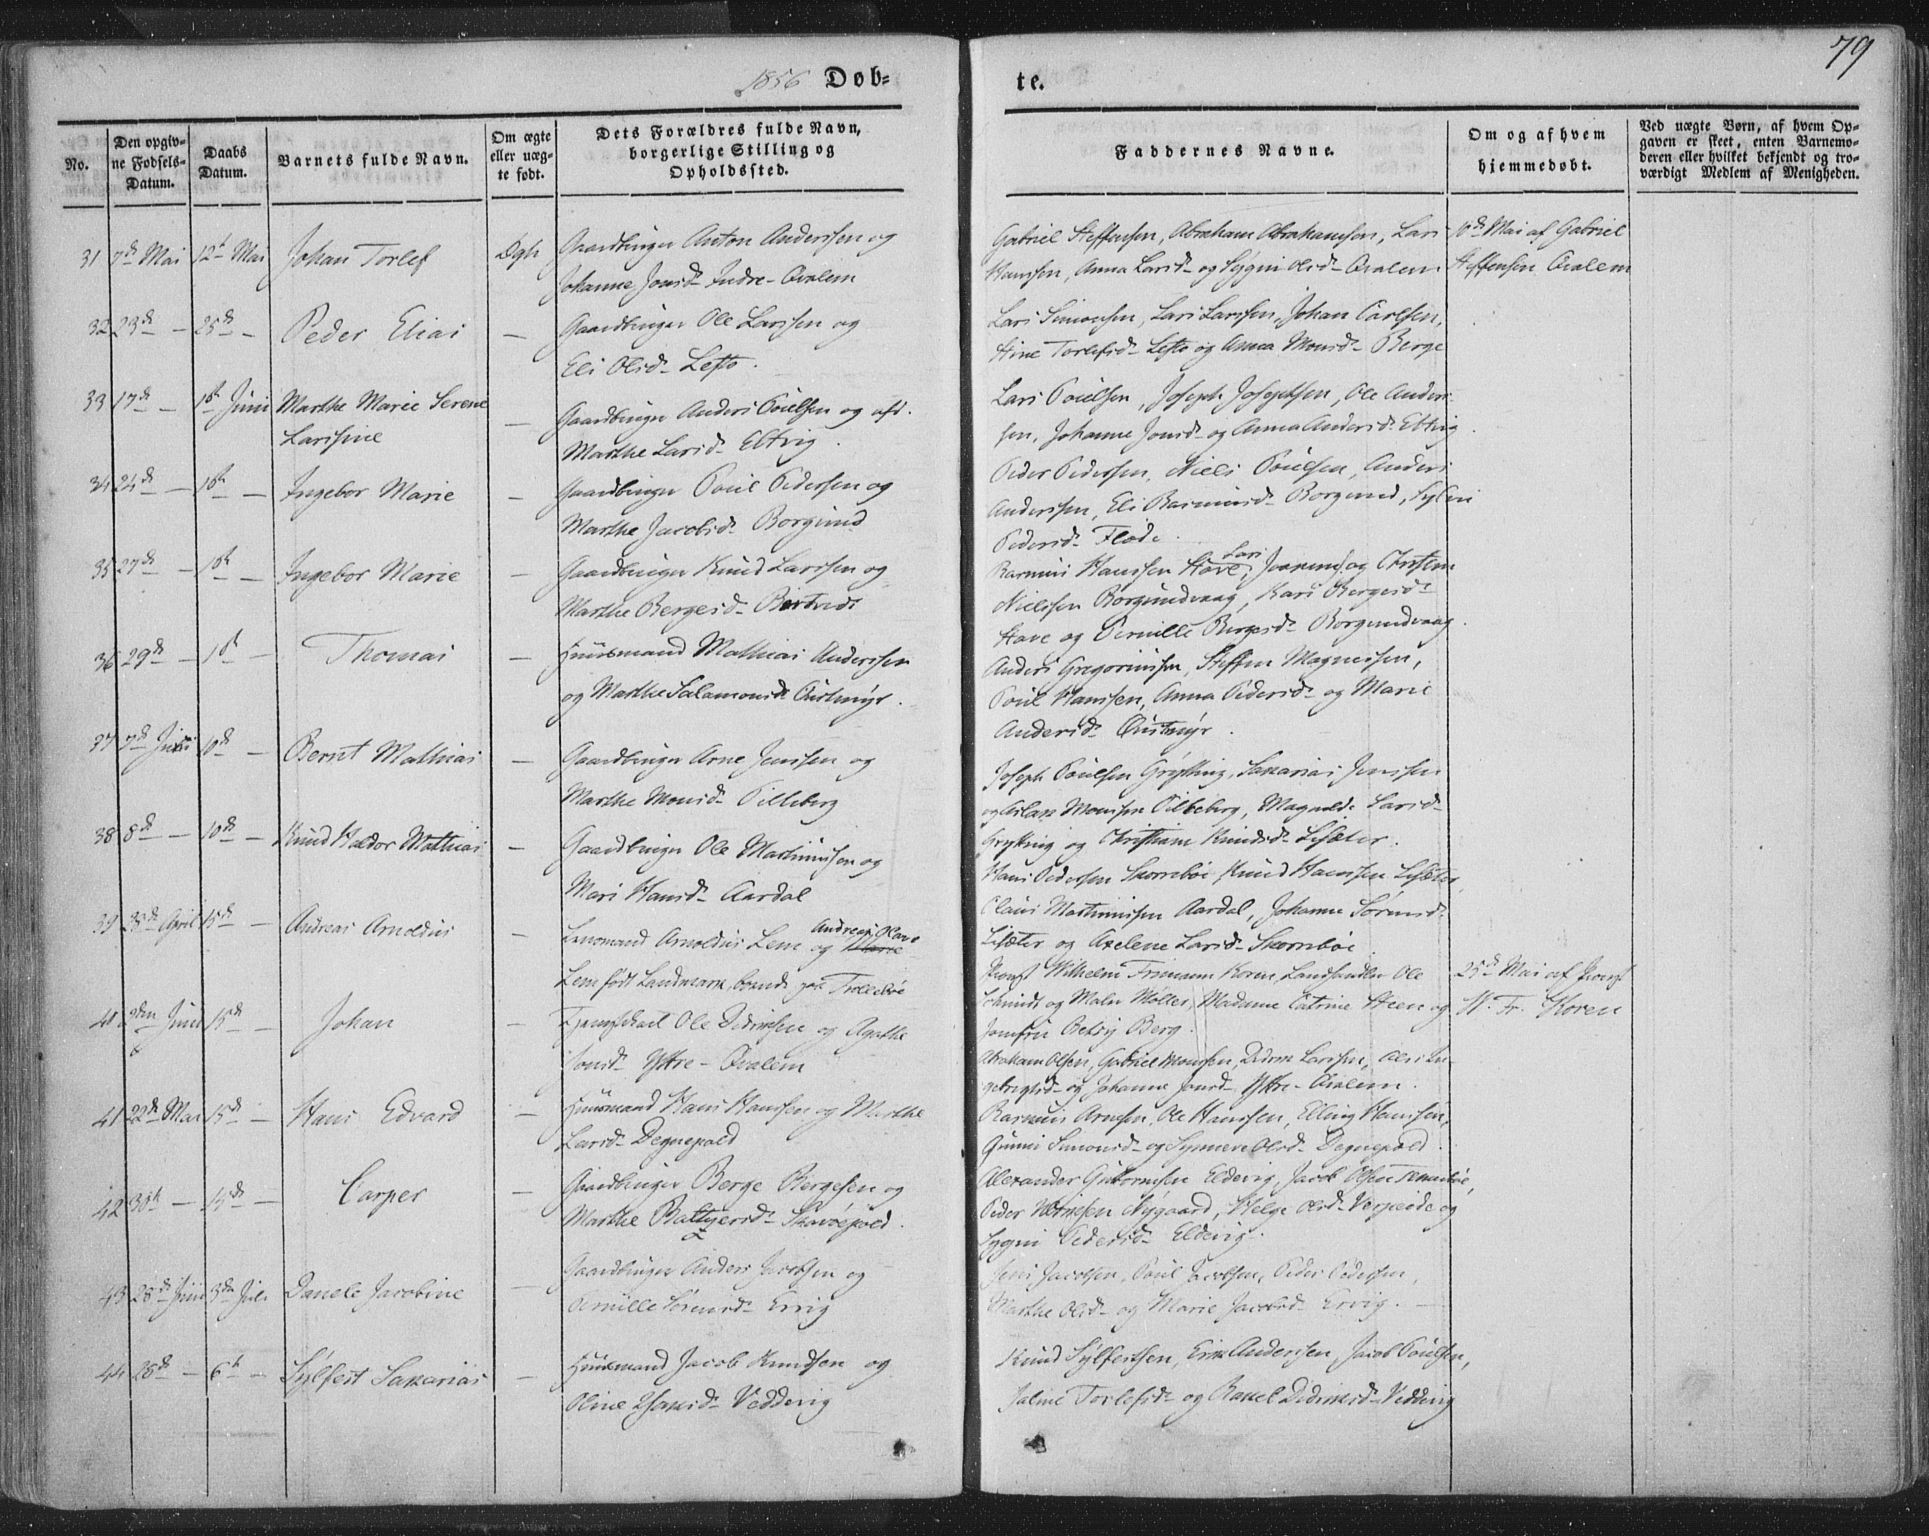 79
1856 Døb-
te.
No.
Den opgiv-
ne Fødsels-
Datum.
Daabs
Datum.
Barnets fulde Navn.
Om ægte
eller uæg-
te født.
Dets Forældres fulde Navn,
borgerlige Stilling og
Opholdssted.
Faddernes Navne.
Om og af hvem
hjemmedøbt.
Ved uægte Børn, af hvem Op-
gaven er skeet, enten Barnemo-
deren eller hvilket bekjendt og tro-
værdigt Medlem af Menigheden.
31 7de Mai 12te Mai Johan Torlef Gaardbruger Anton Anderssen og
Johanne Jonsd. Indre-Qvalem
Gabriel Steffensen, Abraham Abrahamsen, Lars
Hanssen, Anna Larsd. og Sygni Olsd. Qvalem
10de Mai af Gabriel
Steffensen Qvalem
32 23de - 25de - Peder Elias - Gaardbruger Ole Larssen og
Eli Olsd. Lefto.
Lars Simonsen, Lars Larssen, Johan Carlsen,
Stine Torlefsd. Lefto og Anna Monsd. Berge
33 17de - 1ste Juni Marthe Marie Serene
Larssine
- Gaardbruger Anders Poulsen og
Marthe Larsd. Eltvig.
Lars Poulsen, Joseph Josephsen, Ole Anders-
sen, Johanne Jonsd. og Anna Andersd. Eltvig.
34 24de - 1ste - Ingebor Marie - Gaardbruger Poul Pedersen og
Marthe Jacobsd. Borgund
Peder Pedersen, Niels Poulsen, Anders
Anderssen, Eli Rasmusd. Borgund,
Pedersd. Flode.
35 27de - 1ste - Ingebor Marie - Gaardbruger Knud Larssen og
Marthe Bergesd.
Rasmus Hanssen Have, Lars og Christen
Nielssen Borgundvaag, Kari Bergesd.
Have og Pernille Bergesd. Borgundvaag.
36 29de - 1ste - Thomas - Huusmand Mathias Anderssen
og Marthe Salamonsd. Qustmyr.
Anders Gregoriussen, Steffen Magnussen,
Poul Hanssen, Anna Pedersd. og Marie
Andersd. Qustmyr.
37 7de Juni 10de - Bernt Mathias - Gaardbruger Arne Jenssen og
Marthe Monsd. Pilleberg
Joseph Poulsen Grytting, Sakarias Jenssen
og Monssen Pilleberg, Larsd.
Grytting og Christiane Knudsd. Lisæter.
38 8de - 10de - Knud Haldor Mathias - Gaardbruger Ole Martinussen og
Mari Hansd. Aardal
Hans Pedersen Skorrebøe, Knud Hanssen Lisæter,
Claus Martinussen Aardal, Johanne Sørensd.
Lisæter og Axelene Larsd. Skorrebøe
39 28de April 15de - Andreas Arnoldus - Lensmand Arnoldus Lem og Andrea
Lem født Landmark, boende paa Trollebøe
Provst Wilhelm Frimann Koren, Landhandler Ole
Schmidt og Møller, Madame Catrine Steen og
Jomfru Betsy Berg.
25de Mai af Provst
W. Fr. Koren
40 2den Juni 15de - Johan - Ole Didriksen og Agathe
Jonsd. Yttre-Qvalem
Abraham Olsen, Gabriel Monssen, Didrik Larssen, In-
gebrigtsd. og Johanne Jonsd. Yttre-Qvalem.
41 22de Mai 15de - Hans Edvard - Huusmand Hans Hanssen og Marthe
Larsd. Degnepold
Rasmus Arnesen, Ole Hanssen, Elling Hanssen,
Simonsd. og Synneve Olsd. Degnepold.
42 15de - Casper - Gaardbruger Berge Bergesen og
Marthe Skavøepold.
Alexander Guttormsen Eldevig, Jacob Olsen
Peder Nygaard, Helge Olsd. og
Sygni Pedersd. Eldevig.
43 28de Juni 3die Juli Danele Jacobine - Gaardbruger Anders Jacobsen og
Pernille Sørensd. Ervig
Jens Jacobsen, Poul Jacobsen, Peder Pedersen,
Marthe Olsd. og Marie Jacobsd. Ervig.
44 28de - 6te - Sylfest Sakarias - Huusmand Jacob Knudsen og
Oline Isaksd. Veddevig
Knud Sylfestsen, Erik Anderssen, Jacob Poulsen,
Torlefsd. og Rakel Didriksd. Veddevig